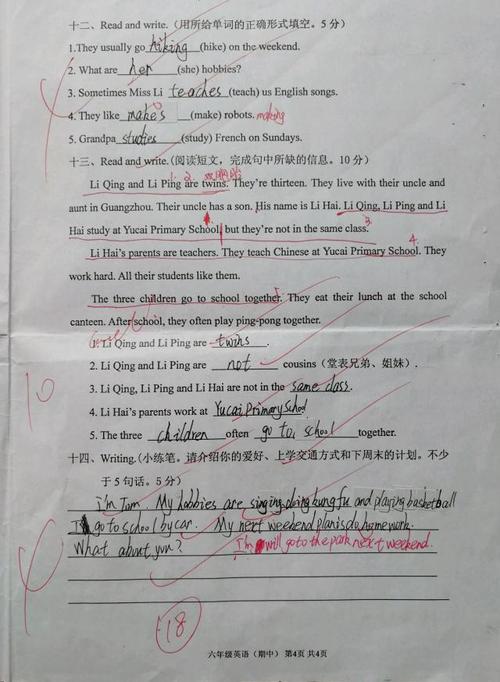 十二、Read and write.(用所给单词的正确形式填空。5 分)
1.They usually go hiking (hike) on the weekend.
2. What are her (she) hobbies?
3. Sometimes Miss Li teaches (teach) us English songs.
4. They like makes (make) robots. making
5. Grandpa studies (study) French on Sundays.
十三、Read and write.(阅读短文，完成句中所缺的信息。10 分)
1. 2. 双胞胎
Li Qing and Li Ping are twins. They're thirteen. They live with their uncle and
aunt in Guangzhou. Their uncle has a son. His name is Li Hai. Li Qing, Li Ping and Li
3.
Hai study at Yucai Primary School, but they're not in the same class.
4.
Li Hai's parents are teachers. They teach Chinese at Yucai Primary School. They
work hard. All their students like them.
The three children go to school together. They eat their lunch at the school
canteen. After school, they often play ping-pong together.
1. Li Qing and Li Ping are twins.
2. Li Qing and Li Ping are not cousins（堂表兄弟、姐妹）.
3. Li Qing, Li Ping and Li Hai are not in the same class.
4. Li Hai's parents work at Yucai Primary School
5. The three children often go to school together.
十四、Writing.(小练笔。请介绍你的爱好、上学交通方式和下周末的计划。不少
于 5 句话。5 分)
I'm Tom. My hobbies are singing, doing kung fu and playing basketball
I go to school by car. My next weekend plan is do homework.
What about you? I'm will go to the park next weekend.
10
-18
六年级英语（期中） 第4页 共4页